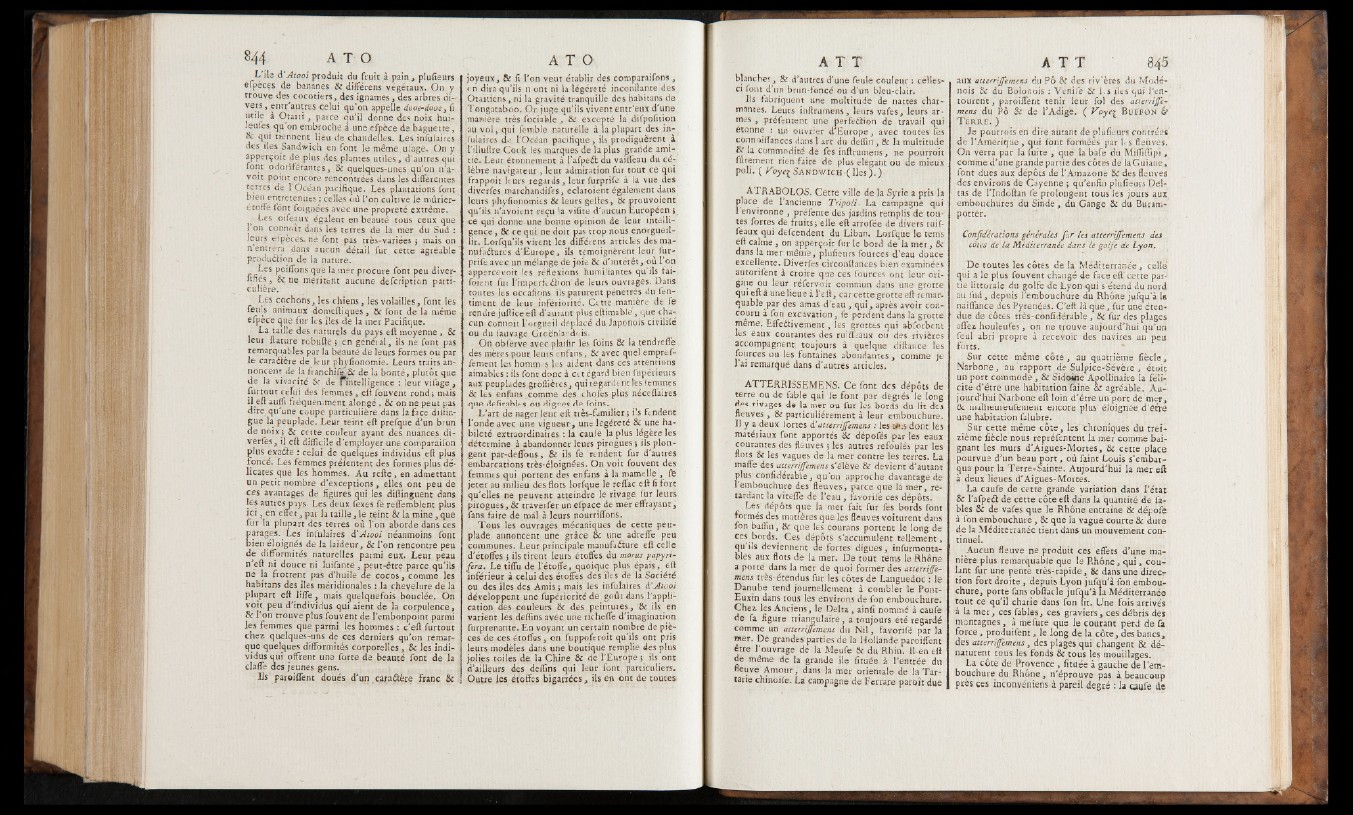 844 A T O
L'île d'Atooi produit du fruit à pain, plusieurs
espèces de bananes & différens végétaux. On y
trouve des cocotiers, des ignames, des arbres di-
vers, entr'autres celui qu'on appelle dooe-dooe, si
utile à Otaiti, parce qu'il donne des noix hui-
leuses qu'on embroche à une espèce de baguette,
& qui tiennent lieu de chandelles. Les insulaires
des îles Sandwich en font le même usage. On y
apperçoit de plus des plantes utiles, d'autres qui
sont odoriférantes, & quelques-unes qu'on n'a-
voit point encore rencontrées dans les différentes
terres de l'Océan pacifique. Les plantations sont
bien entretenues : celles où l'on cultive le mûrier-
étoffe sont soignées avec une propreté extrême.
Les oiseaux égalent en beauté tous ceux que
l'on connoît dans les terres de la mer du Sud :
leurs espèces ne sont pas très-variées ; mais on
n'entrera dans aucun détail sur cette agréable
production de la nature.
Les poissons que la mer procure sont peu diver-
sifiés, & ne méritent aucune description parti-
culière.
Les cochons, les chiens, les volailles, sont les
seuls animaux domestiques, & sont de la même
espèce que sur les îles de la mer Pacifique.
La taille des naturels du pays est moyenne, &
leur stature robuste ; en général, ils ne sont pas
remarquables par la beauté de leurs formes ou par
le caractère de leur physionomie. Leurs traits an-
noncent de la franchise & de la bonté, plutôt que
de la vivacité & de l'intelligence : leur visage,
surtout celui des femmes, est souvent rond ; mais
il est aussi fréquemment alongé, & on ne peut pas
dire qu'une coupe particulière dans la face distin-
gue la peuplade. Leur teint est presque d'un brun
de noix ; & cette couleur ayant des nuances di-
verses, il est difficile d'employer une comparaison
plus exacte : celui de quelques individus est plus
foncé. Les femmes présentent des formes plus dé-
licates que les hommes. Au reste, en admettant
un petit nombre d'exceptions, elles ont peu de
ces avantages de figures qui les distinguent dans
les autres pays. Les deux sexes se ressemblent plus
ici, en effet, par la taille, le teint & la mine, que
sur la plupart des terres où l'on aborde dans ces
parages. Les insulaires d'Atooi néanmoins sont
bien éloignés de la laideur, & l'on rencontre peu
de difformités naturelles parmi eux. Leur peau
n'est ni douce ni luisante, peut-être parce qu'ils
ne la frottent pas d'huile de cocos, comme les
habitans des îles méridionales : la chevelure de la
plupart est lisse, mais quelquefois bouclée. On
voit peu d'individus qui aient de la corpulence,
& l'on trouve plus souvent de l'embonpoint parmi
les femmes que parmi les hommes : c'est surtout
chez quelques-uns de ces derniers qu'on remar-
que quelques difformités corporelles, & les indi-
vidus qui offrent une sorte de beauté sont de la
classe des jeunes gens.
Ils paroissent doués d'un caractère franc &
A T O
joyeux, & si l'on veut établir des comparaisons,
on dira qu'ils n'ont ni la légéreté inconstante des
Otaïtiens, ni la gravité tranquille des habitans de
Tongataboo. On juge qu'ils vivent entr'eux d'une
manière très-sociable, & excepté la disposition
au vol, qui semble naturelle à la plupart des in-
sulaires de l'Océan pacifique, ils prodiguèrent à
l'illustre Cook les marques de la plus grande ami-
tié. Leur étonnement à l'aspect du vaisseau du cé-
lèbre navigateur, leur admiration sur tout ce qui
frappoit leurs regards, leur surprise à la vue des
diverses marchandises, éclatoient également dans
leurs physionomies & leurs gestes, & prouvoient
qu'ils n'avoient reçu la visite d'aucun Européen ;
ce qui donne une bonne opinion de leur intelli-
gence, & ce qui ne doit pas trop nous enorgueil-
lir. Lorsqu'ils virent les différens articles des ma-
nufactures d'Europe, ils témoignèrent leur sur-
prise avec un mélange de joie & d'intérêt, où l'on
appercevoit les réflexions humiliantes qu'ils fai-
soient sur l'imperfection de leurs ouvrages. Dans
toutes les occasions ils parurent pénétrés du sen-
timent de leur infériorité. Cette manière de se
rendre justice est d'autant plus estimable, que cha-
cun connoît l'orgueil déplacé du Japonois civilisé
ou du sauvage Groënlandois.
On observe avec plaisir les soins & la tendresse
des mères pour leurs enfans, & avec quel empres-
sement les hommes les aident dans ces attentions
aimables : ils sont donc à cet égard bien supérieurs
aux peuplades grossières, qui regardent les femmes
& les enfans comme des choses plus nécessaires
que desirables ou dignes de soins.
L'art de nager leur est très-familier ; ils fendent
l'onde avec une vigueur, une légéreté & une ha-
bileté extraordinaires : la cause la plus légère les
détermine à abandonner leurs pirogues ; ils plon-
gent par-dessous, & ils se rendent sur d'autres
embarcations très-éloignées. On voit souvent des
femmes qui portent des enfans à la mamelle, se
jeter au milieu des flots lorsque le ressac est si fort
qu'elles ne peuvent atteindre le rivage sur leurs
pirogues, & traverser un espace de mer effrayant,
sans faire de mal à leurs nourrissons.
Tous les ouvrages mécaniques de cette peu-
plade annoncent une grâce & une adresse peu
communes. Leur principale manufacture est celle
d'étoffes ; ils tirent leurs étoffes du morus papyri-
fera. Le tissu de l'étoffe, quoique plus épais, est
inférieur à celui des étoffes des îles de la Société
ou des îles des Amis ; mais les insulaires d'Atooi
développent une supériorité de goût dans l'appli-
cation des couleurs & des peintures, & ils en
varient les dessins avec une richesse d'imagination
surprenante. En voyant un certain nombre de piè-
ces de ces étoffes, on supposeroit qu'ils ont pris
leurs modèles dans une boutique remplie des plus
jolies toiles de la Chine & de l'Europe ; ils ont
d'ailleurs des dessins qui leur sont particuliers.
Outre les étoffes bigarrées, ils en ont de toutes
A T T
blanches, & d'autres d'une seule couleur : celles-
ci sont d'un brun-foncé ou d'un bleu-clair.
Ils fabriquent une multitude de nattes char-
mantes. Leurs instrumens, leurs vases, leurs ar-
mes, présentent une perfection de travail qui
étonne : un ouvrier d'Europe, avec toutes ses
connoissances dans l'art du dessin, & la multitude
& la commodité de ses instrumens, ne pourroit
sûrement rien faire de plus élégant ou de mieux
poli. ( Voyez SANDWICH (Iles ). )
ATRABOLOS. Cette ville de la Syrie a pris la
place de l'ancienne Tripoli. La campagne qui
l'environne, présente des jardins remplis de tou-
tes sortes de fruits ; elle est arrosée de divers ruis-
seaux qui descendent du Liban. Lorsque le tems
est calme, on apperçoit sur le bord de la mer, &
dans la mer même, plusieurs sources d'eau douce
excellente. Diverses circonstances bien examinées
autorisent à croire que ces sources ont leur ori-
gine ou leur réservoir commun dans une grotte
qui est à une lieue à l'est, car cette grotte est remar-
quable par des amas d'eau, qui, après avoir con-
couru à son excavation, se perdent dans la grotte
même. Effectivement, les grottes qui absorbent
les eaux courantes des ruisseaux ou des rivières
accompagnent toujours à quelque distance les
sources ou les fontaines abondantes, comme je
l'ai remarqué dans d'autres articles.
ATTERRISSEMENS. Ce sont des dépôts de
terre ou de sable qui se font par degrés le long
des rivages de la mer ou sur les bords du lit des
fleuves, & particuliérement à leur embouchure.
Il y a deux sortes d'atterrissemens : les uns dont les
matériaux sont apportés & déposés par les eaux
courantes des fleuves ; les autres refoulés par les
flots & les vagues de la mer contre les terres. La
masse des atterrissemens s'élève & devient d'autant
plus considérable, qu'on approche davantage de
l'embouchure des fleuves, parce que la mer, re-
tardant la vitesse de l'eau, favorise ces dépôts.
Les dépôts que la mer fait sur ses bords sont
formés des matières que les fleuves voiturent dans
son bassin, & que les courans portent le long de
ces bords. Ces dépôts s'accumulent tellement,
qu'ils deviennent de fortes digues, insurmonta-
bles aux flots de la mer. De tout tems le Rhône
a porté dans la mer de quoi former des atterrisse-
mens très-étendus sur les côtes de Languedoc : le
Danube tend journellement à combler le Pont-
Euxin dans tous les environs de son embouchure.
Chez les Anciens, le Delta, ainsi nommé à cause
de sa figure triangulaire, a toujours été regardé
comme un atterrissement du Nil, favorisé par la
mer. De grandes parties de la Hollande paroissent
être l'ouvrage de la Meuse & du Rhin. Il en est
de même de la grande île située à l'entrée du
fleuve Amour, dans la mer orientale de la Tar-
tarie chinoise. La campagne de Ferrare paroît due
A T T 845
aux atterrissemens du Pô & des rivières du Modé-
nois & du Bolonois : Venise & les îles qui l'en-
tourent, paroissent tenir leur sol des atterrisse-
mens du Pô & de l'Adige. ( Voyez BUFFON &
TERRE. )
Je pourrois en dire autant de plusieurs contrées
de l'Amérique, qui sont formées par les fleuves.
On verra par la suite, que la base du Mississipi,
comme d'une grande partie des côtes de la Guiane,
sont dues aux dépôts de l'Amazone & des fleuves
des environs de Cayenne ; qu'enfin plusieurs Del-
tas de l'Indostan se prolongent tous les jours aux
embouchures du Sinde, du Gange & du Buram-
potter.
Considérations générales sur les atterrissemens des
côtes de la Méditerranée dans le golfe de Lyon.
De toutes les côtes de la Méditerranée, celle
qui a le plus souvent changé de face est cette par-
tie littorale du golfe de Lyon qui s'étend du nord
au sud, depuis l'embouchure du Rhône jusqu'à la
naissance des Pyrénées. C'est là que, sur une éten-
due de côtes très-considérable, & sur des plages
assez houleuses, on ne trouve aujourd'hui qu'un
seul abri propre à recevoir des navires un peu
forts.
Sur cette même côte, au quatrième siècle,
Narbone, au rapport de Sulpice-Sévère, étoit
un port commode, & Sidoine Apollinaire la féli-
cite d'être une habitation saine & agréable. Au-
jourd'hui Narbone est loin d'être un port de mer,
& malheureusement encore plus éloignée d'être
une habitation salubre.
Sur cette même côte, les chroniques du trei-
zième siècle nous représentent la mer comme bai-
gnant les murs d'Aigues-Mortes, & cette place
pourvue d'un beau port, où saint Louis s'embar-
qua pour la Terre-Sainte. Aujourd'hui la mer est
à deux lieues d'Aigues-Mortes.
La cause de cette grande variation dans l'état
& l'aspect de cette côte est dans la quantité de sa-
bles & de vases que le Rhône entraîne & dépose
à son embouchure, & que la vague courte & dure
de la Méditerranée tient dans un mouvement con-
tinuel.
Aucun fleuve ne produit ces effets d'une ma-
nière plus remarquable que le Rhône, qui, cou-
lant sur une pente très-rapide, & dans une direc-
tion fort droite, depuis Lyon jusqu'à son embou-
chure, porte sans obstacle jusqu'à la Méditerranée
tout ce qu'il charie dans son lit. Une fois arrivés
à la mer, ces sables, ces graviers, ces débris des
montagnes, à mesure que le courant perd de sa
force, produisent, le long de la côte, des bancs,
des atterrissemens, des plages qui changent & dé-
naturent tous les fonds & tous les mouillages.
La côte de Provence, située à gauche de l'em-
bouchure du Rhône, n'éprouve pas à beaucoup
près ces inconvéniens à pareil degré : la cause de